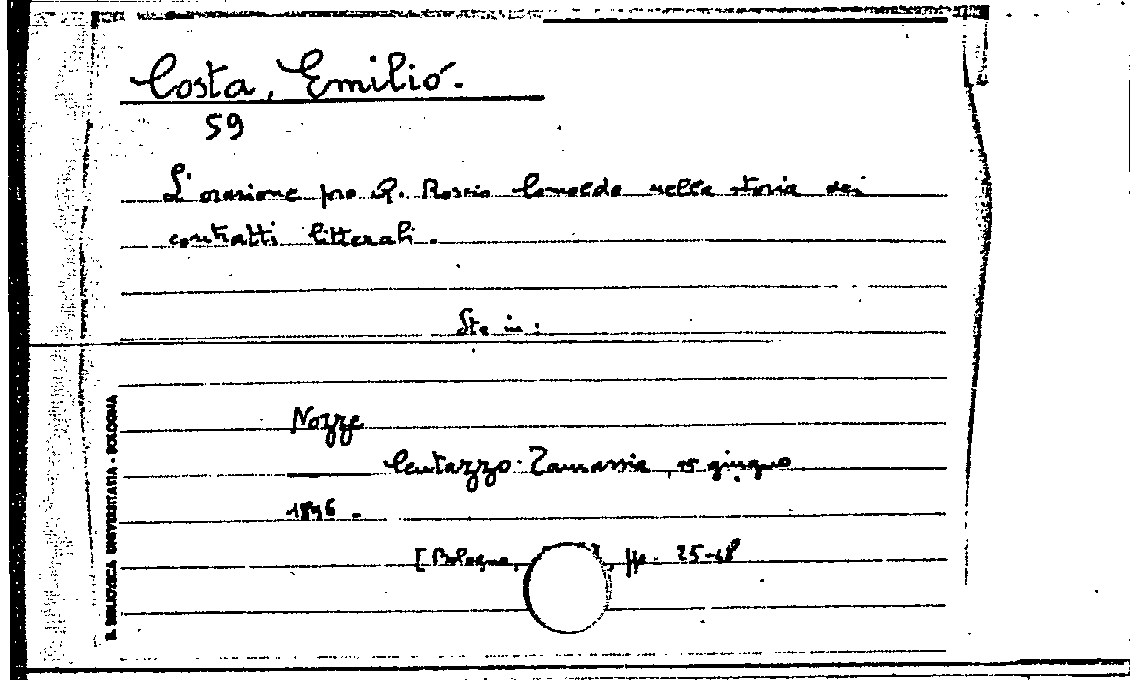 Costa, Emilio.
59
L'orazione pro Q. Roscio Comoedo nella storia dei
contratti litterali.
Sta in:
Nozze
Centazzo-Tamassia, 15 giugno
1896.
[Bologna, , pp. 25-48
B. BIBLIOTECA UNIVERSITARIA - BOLOGNA